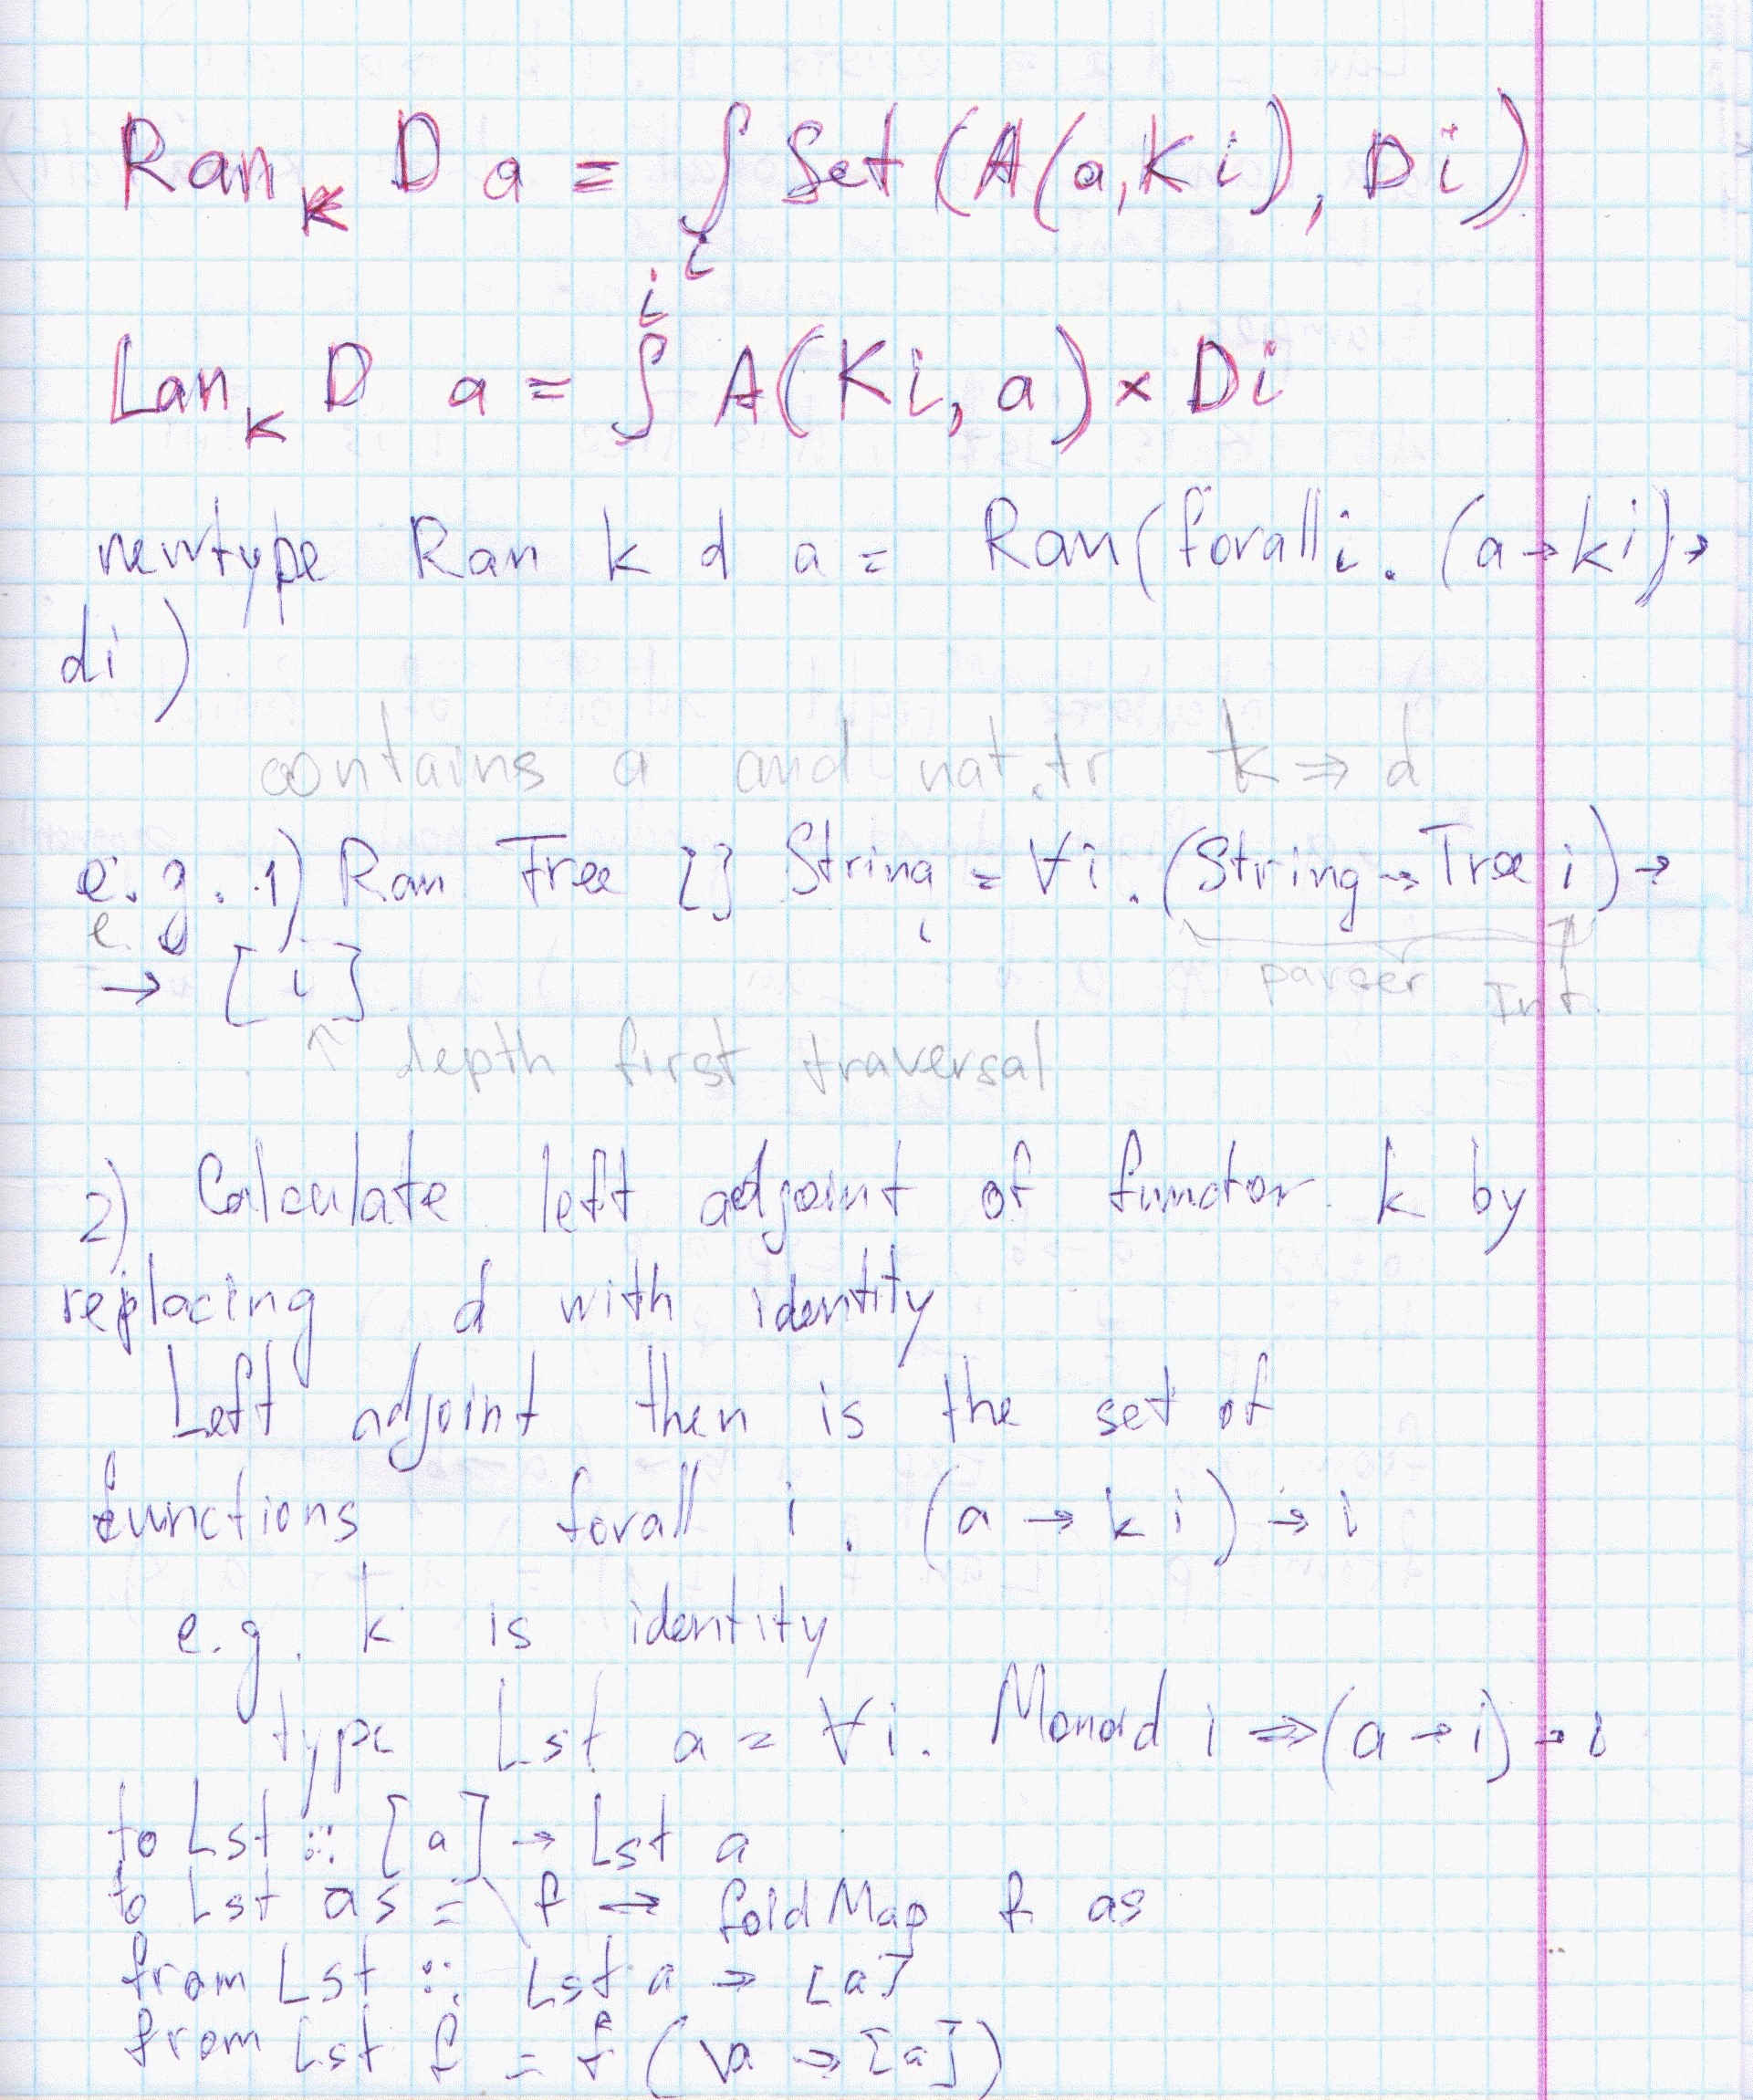 Ran_K D a = ∫_i Set (A(a, K i), D i)
Lan_K D a = ∫^i A(K i, a) × D i
newtype Ran k d a = Ran (forall i. (a → k i) →
d i)
contains a and nat. tr k ⇒ d
e.g. 1) Ran Tree [] String = ∀i. (String → Tree i) →
→ [i]
parser Int.
↑ depth first traversal
2) Calculate left adjoint of functor k by
replacing d with identity
Left adjoint then is the set of
functions forall i. (a → k i) → i
e.g. k is identity
type Lst a = ∀i. Monoid i ⇒ (a → i) → i
to Lst :: [a] → Lst a
to Lst as = \f → fold Map f as
from Lst :: Lst a → [a]
from Lst f = f (\a → [a])